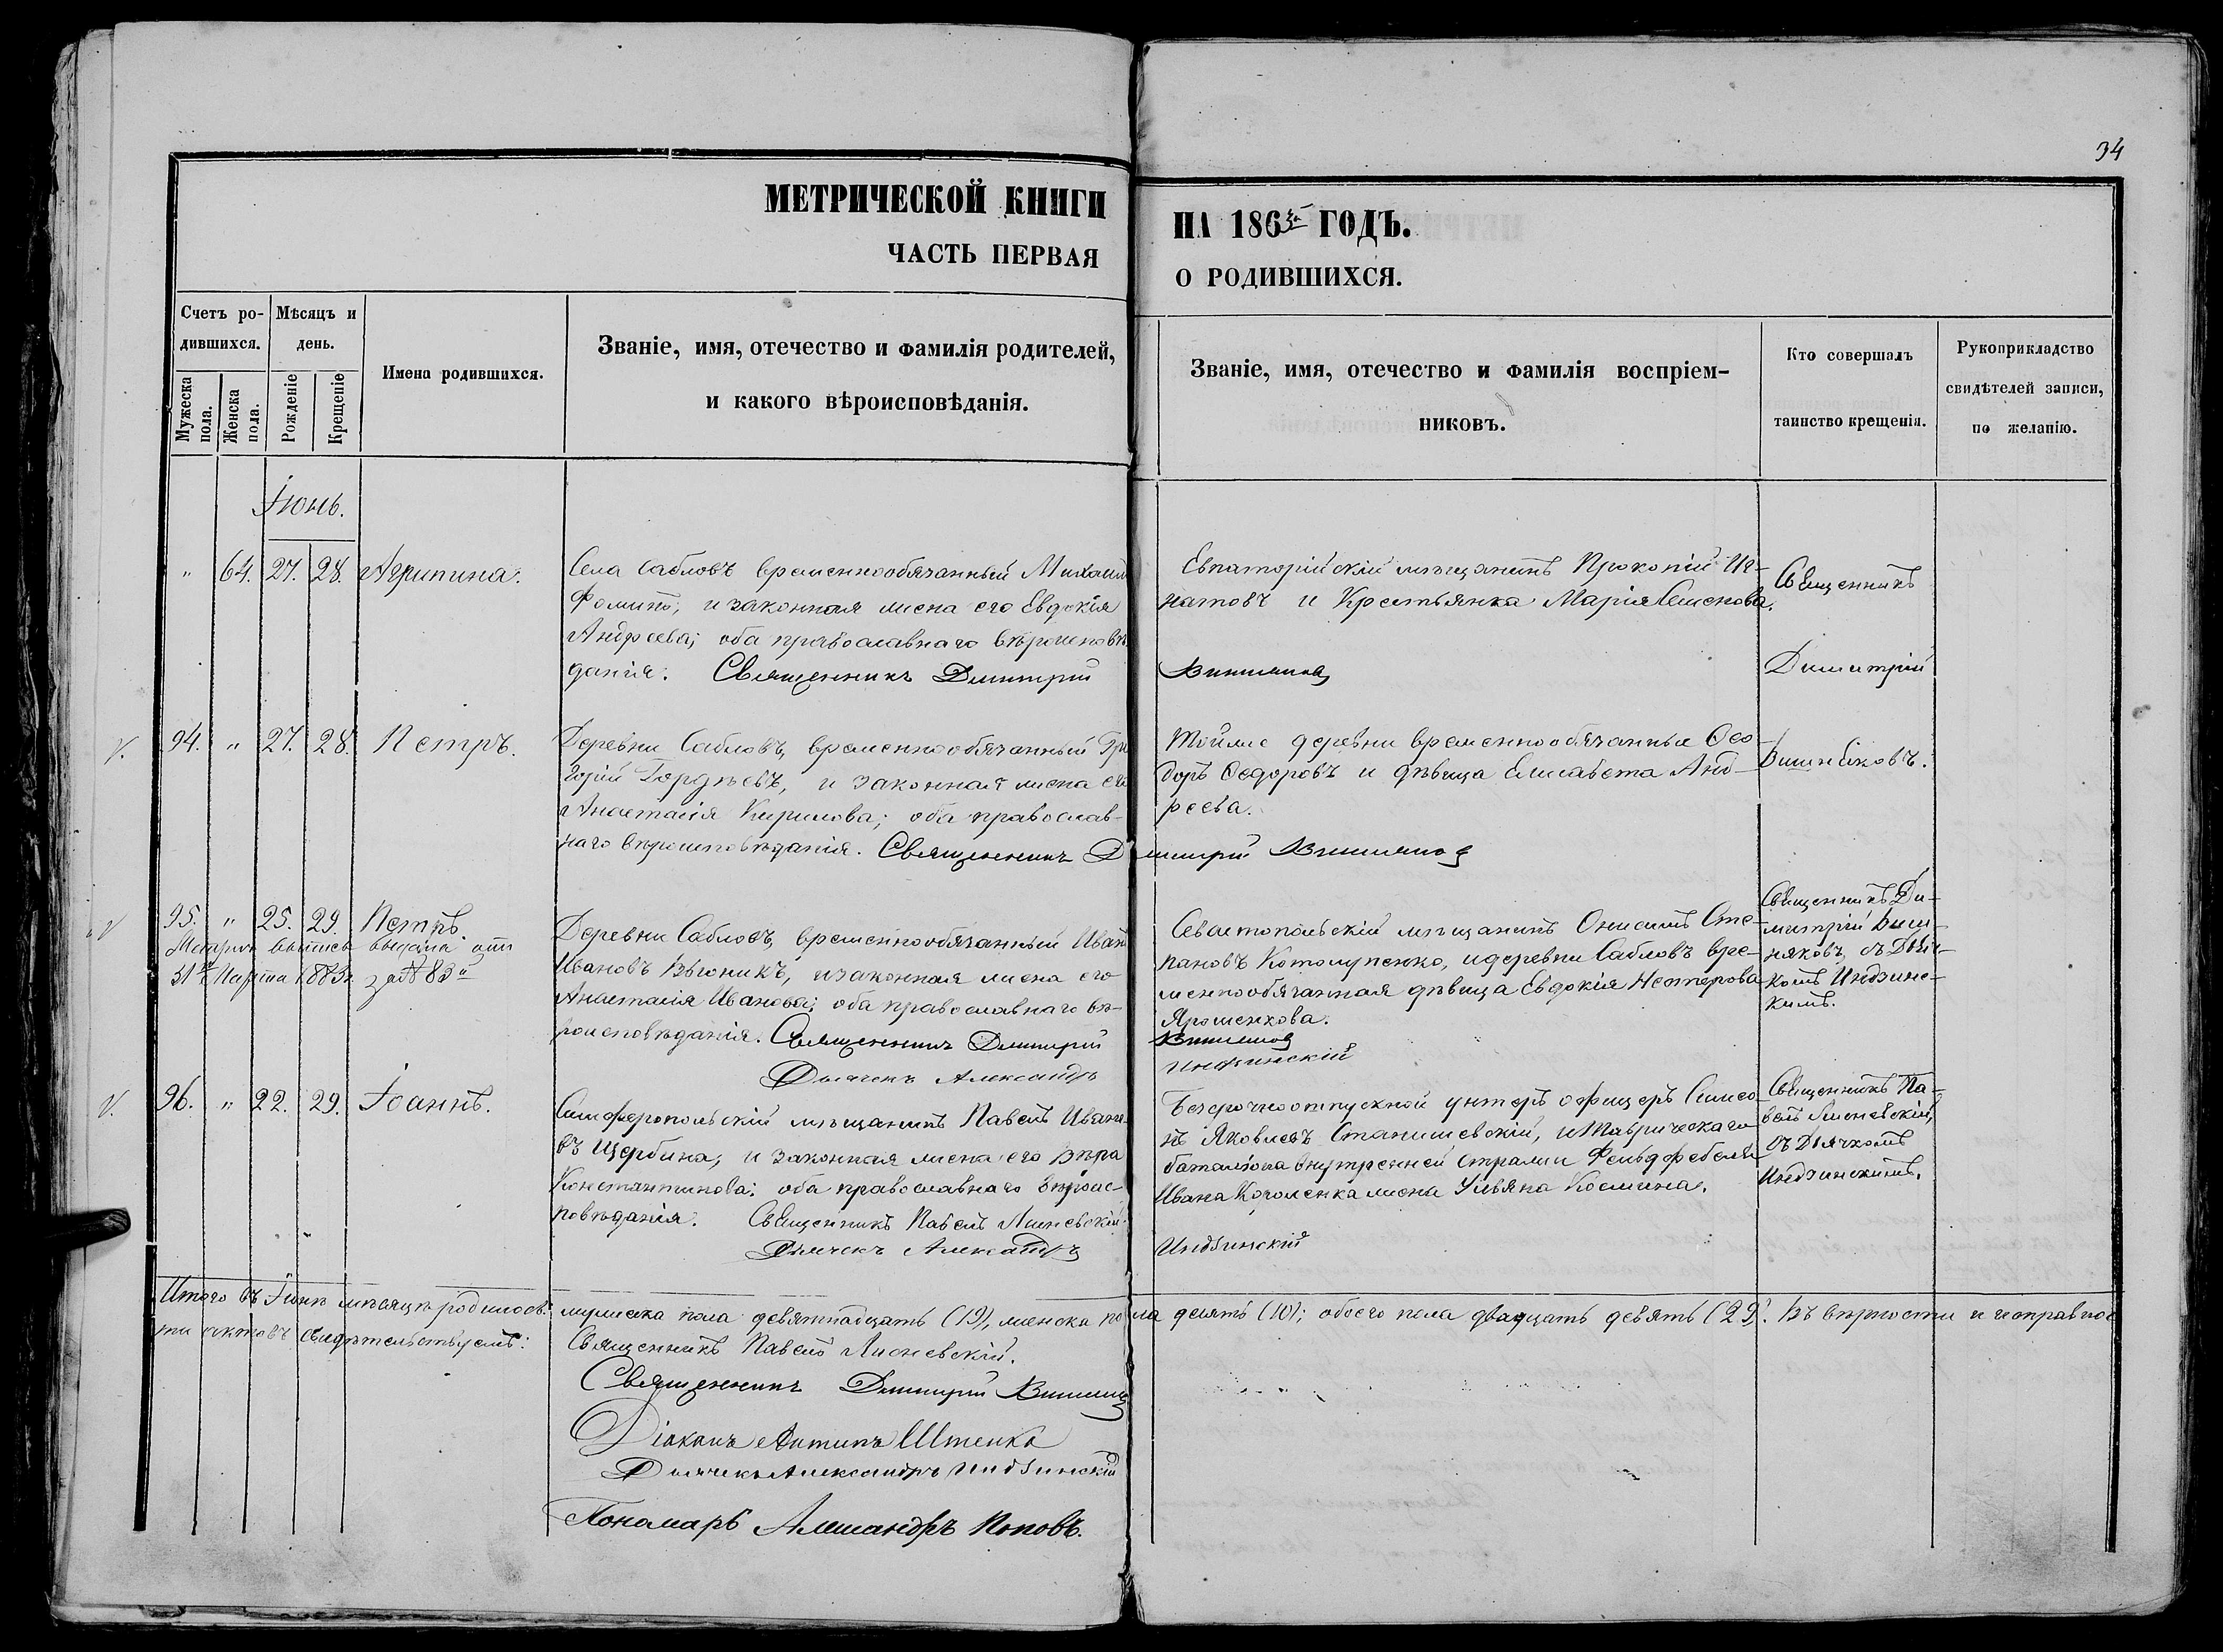 34
МЕТРИЧЕСКОЙ КНИГИ НА 1863й ГОДЪ.
ЧАСТЬ ПЕРВАЯ О РОДИВШИХСЯ.
Счетъ ро-
дившихся.
Мужеска пола.
Женска пола.
Мѣсяцъ и
день.
Рожденіе
Крещеніе
Имена родившихся.
Званіе, имя, отечество и фамилія родителей,
и какого вѣроисповѣданія.
Званіе, имя, отечество и фамилія воспріем-
никовъ.
Кто совершалъ
таинство крещенія.
Рукоприкладство
свидѣтелей записи,
по желанію.
Іюнь.
" 64. 27. 28. Агрипина.
Села Сабловъ временнообязанный Михаилъ
Фоминъ, и законная жена его Евдокія
Андреева; оба православнаго вѣроисповѣ-
данія. Священникъ Димитрий
Евпаторійскій мѣщанинъ Прокопій Иг-
натовъ и Крестьянка Марія Семенова.
Священникъ
Димитрій
V. 94. " 27. 28. Петръ.
Деревни Сабловъ, временнообязанный Гри
горій Гордѣевъ, и законная жена его
Анастасія Кирилова; оба православ-
наго вѣроисповѣданія. Священникъ Димитрий
Тойже деревни временнообязанные Ѳео-
доръ Ѳедоровъ и дѣвица Елисавета Анд-
реева.
V 95. " 25. 29. Петръ.
31го Марта 1883г. за № 83й
Деревни Сабловъ, временнообязанный Иванъ
Ивановъ Вьюникъ, и законная жена его
Анастасія Иванова; оба православнаго вѣ-
роисповѣданія. Священникъ Димитрий
Дьячекъ Александръ
Севастопольскій мѣщанинъ Онисимъ Сте-
пановъ Котолупенко, и деревни Сабловъ вре-
меннообязанная дѣвица Евдокія Нестерова
Ярошенкова.
Индзинскій
Священникъ Ди-
митрій Виш-
няковъ, съ Дьяч-
комъ Индзинс-
кимъ.
V. 96. " 22. 29. Іоаннъ.
Симферопольскій мѣщанинъ Павелъ Ивано-
въ Щербина, и законная жена его Вѣра
Константинова; оба православнаго вѣроис-
повѣданія. Священникъ Павелъ
Дьячекъ Александръ
Безсрочноотпускной унтеръ офицеръ Симео-
нъ Яковлевъ Станишевскій, и Таврическаго
баталіона внутренней стражи Фельдфебеля
Ивана жена Ульяна Космина.
Индзинскій
Священникъ Па-
велъ
съ Дьячкомъ
Индзинскимъ.
Итого въ Іюнѣ мѣсяцѣ родилось: мужеска пола девятнадцать (19), женска пола десять (10); обоего пола двадцать девять (29). Въ вѣрности и исправнос
ти актовъ свидѣтельствуемъ:
Священникъ Павелъ
Священникъ Димитрий
Діаконъ Антипъ
Дьячекъ Александръ Индзинскій
Пономарь Александръ Поповъ.